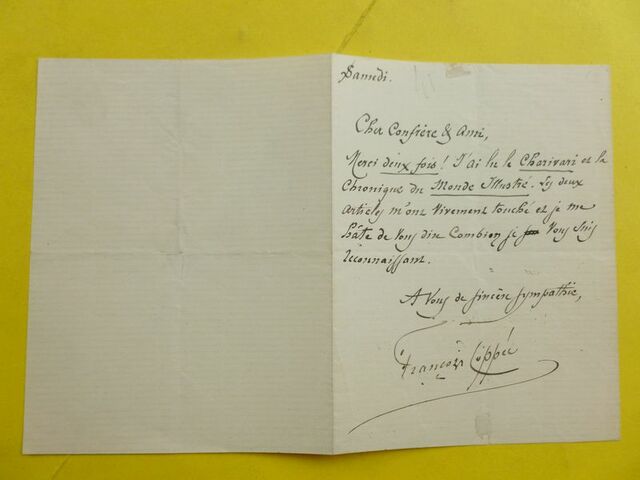 Samedi.
Cher Confrère & Ami,
Merci deux fois ! J'ai lu le Charivari et la
Chronique du Monde Illustré. Les deux
articles m'ont vivement touché et je me
hâte de vous dire combien je vous suis
reconnaissant.
A vous de sincère sympathie,
François Coppée